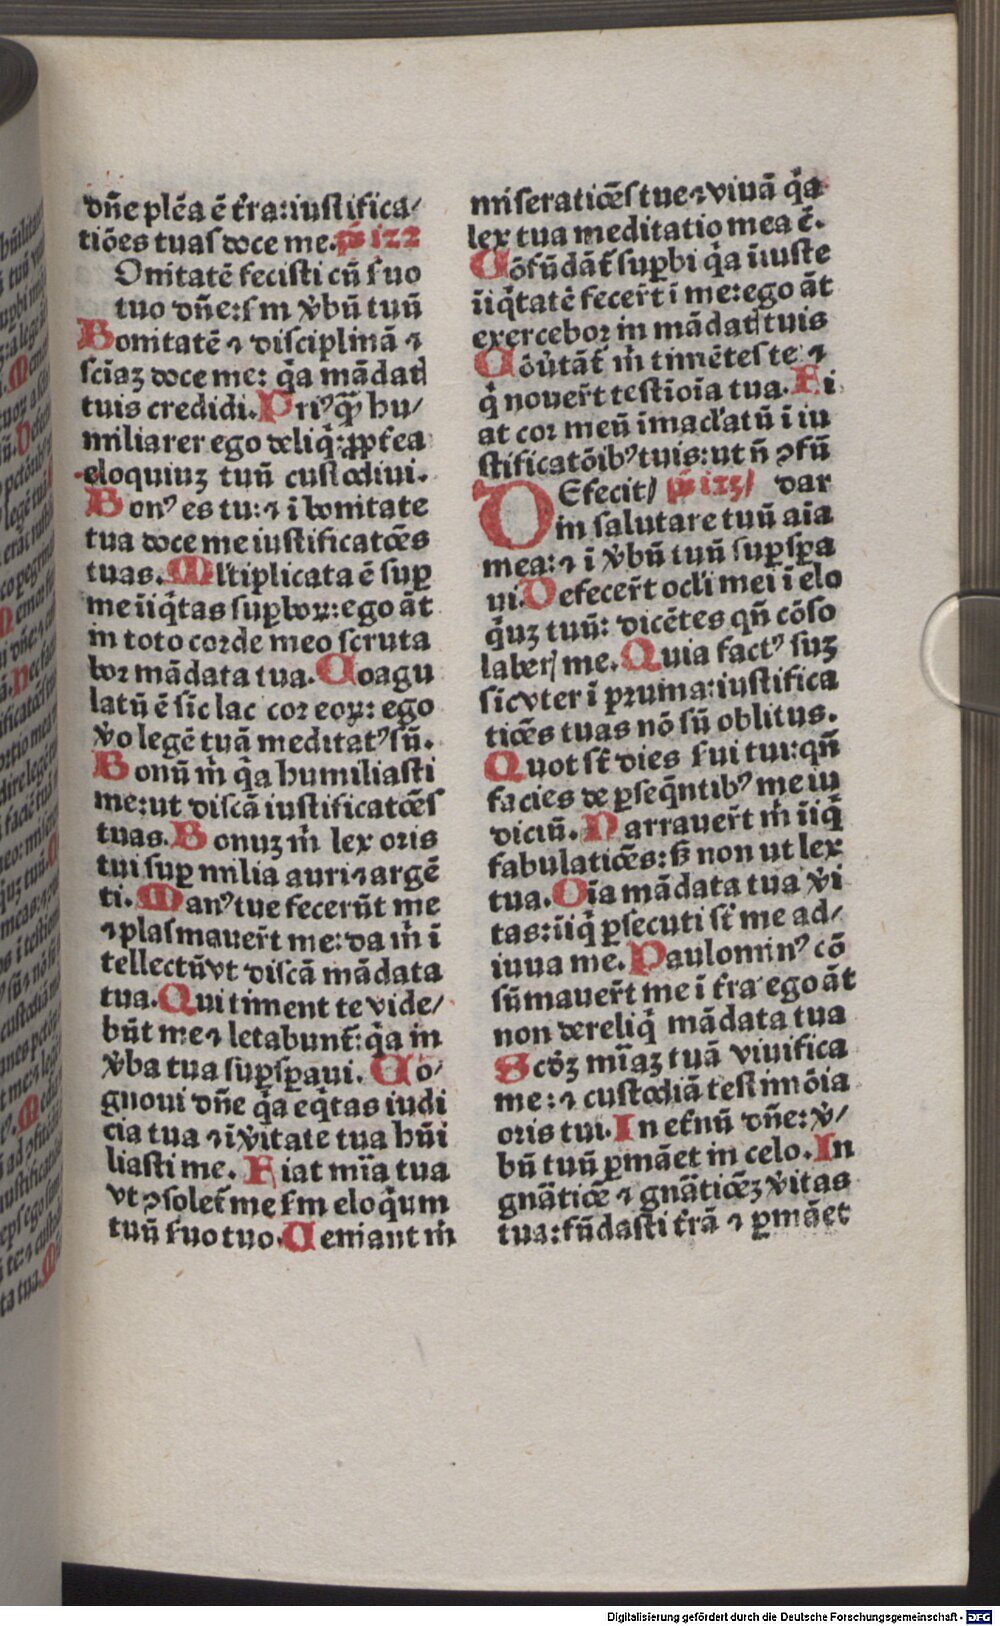 dñe plēa ē t̄ra: iustifica/
tiōes tuas doce me. ps̄ 122
Onitatē fecisti cū s̄uo
tuo dñe: s̄m v̄bū tuū
Bonitatē ⁊ disciplinā ⁊
sciāꝫ doce me: q̄a mādat
tuis credidi. Priꝰqꝫ̄ hu/
miliarer ego deliq̄: ꝓpt̄ea
eloquiuꝫ tuū custodiui.
Bonꝰ es tu: ⁊ ī bonitate
tua doce me iustificatōes
tuas. Ml̄tiplicata ē suꝑ
me iīq̄tas suꝑboꝝ: ego āt
in toto corde meo scruta
bor mādata tua. Coagu
latū ē sīc lac cor eoꝝ: ego
v̄o legē tuā meditatꝰ sū.
Bonū m̄ q̄a humiliasti
me: ut discā iustificatōes
tuas. Bonuꝫ m̄ lex oris
tui suꝑ milia auri ⁊ argē
ti. Manꝰ tue fecerūt me
⁊ plasmauer̄t me: da m̄ ī
tellectū vt discā mādata
tua. Qui timent te vide/
būt me ⁊ letabunt̄: q̄a in
v̄ba tua suꝑsꝑaui. Co/
gnoui dñe q̄a eq̄tas iudi
cia tua ⁊ ī v̄itate tua hūi
liasti me. Fiat mīa tua
vt ꝯsolet̄ me s̄m eloq̄um
tuū s̄uo tuo. Ueniant m̄
miseratiōes tue ⁊ viuā q̄a
lex tua meditatio mea ē.
Cōfūdāt̄ suꝑbi q̄a iniuste
iīq̄tatē fecer̄t ī me: ego āt
exercebor in mādat tuis
Cōūtāt̄ m̄ timētes te: ⁊
q̄ nouer̄t testīoīa tua. Fi
at cor meū īmacl̄atū ī iu
stificatōibꝰ tuis: ut n̄ ꝯfū
DEfecit/ ps̄ 123/ dar
in salutare tuū aīa
mea: ⁊ ī v̄bū tuū suꝑsꝑa
ui. Defecer̄t ocl̄i mei ī elo
q̄uꝫ tuū: dicētes qn̄ cōso
laberꝭ me. Quia factꝰ suꝫ
sic vter ī pruina: iustifica
tiōes tuas nō sū oblitus.
Quot st̄ dies s̄ui tui: qn̄
facies de ꝑseq̄ntibꝰ me iu
diciū. Narrauer̄t m̄ iīq̄
fabulatiōes: sꝫ non ut lex
tua. Oīa mādata tua v̄i
tas: iīq̄ ꝑsecuti st̄ me ad/
iuua me. Paulominꝰ cō
sūmauer̄t me ī t̄ra ego āt
non dereliq̄ mādata tua
Scd̄ꝫ mīaꝫ tuā viuifica
me: ⁊ custodiā testimōia
oris tui. In et̄nū dñe: v̄/
bū tuū ꝑmāet in celo. In
gnātiōe ⁊ gnātiōeꝫ v̄itas
tua: fūdasti t̄rā ⁊ ꝑmāet
Digitalisierung gefördert durch die Deutsche Forschungsgemeinschaft - DFG